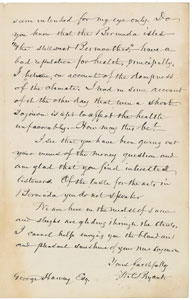 seem intended for my eye only. Do
you know that the Bermuda isles
"the still vext Bermoothes," have a
bad reputation for health, principally,
I believe, on account of the dampness
of the climate. I read in some account
of it the other day that even a short
sojourn is apt to affect the health
unfavorably. How may this be?
I see that you have been giving out
your views of the money question and
am glad that you find interested
listeners. Of the taste for the arts, in
Bermuda you do not speak.
We are here in the midst of snow
and sleighs are gliding through the streets.
I cannot help envying you the bland air
and pleasant sunshine of your
Yours faithfully
George Harvey Esq. W. C. Bryant